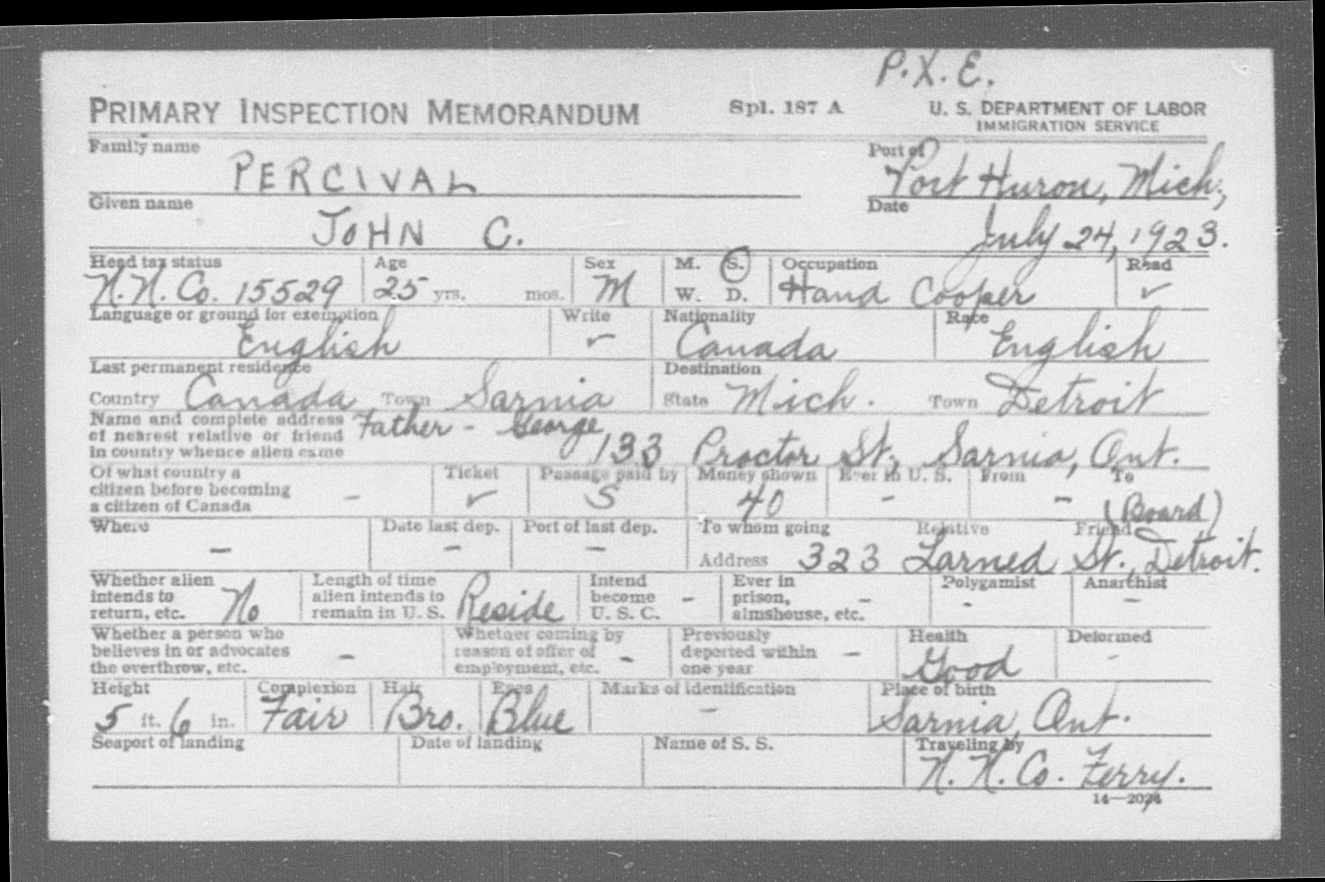 P.X.E.
PRIMARY INSPECTION MEMORANDUM Spl. 187 A U. S. DEPARTMENT OF LABOR
IMMIGRATION SERVICE
Family name PERCIVAL Port of Port Huron, Mich,
Given name JOHN C. Date July 24, 1923.
Head tax status Age Sex M. S. Occupation Read
N.N. Co. 15529 25 yrs. mos. M W. D. Hand Cooper ✓
Language or ground for exemption Write Nationality Race
English ✓ Canada English
Last permanent residence Destination
Country Canada Town Sarnia State Mich. Town Detroit
Name and complete address Father - George
of nearest relative or friend 133 Proctor St, Sarnia, Ont.
in country whence alien came
Of what country a Ticket Passage paid by Money shown Ever in U. S. From To
citizen before becoming - ✓ S 40 - -
a citizen of Canada (Board)
Where Date last dep. Port of last dep. To whom going Relative Friend
- - - Address 323 Larned St., Detroit.
Whether alien Length of time Intend Ever in Polygamist Anarchist
intends to No alien intends to Reside become - prison, - - -
return, etc. remain in U. S. U. S. C. almshouse, etc.
Whether a person who Whether coming by Previously Health Deformed
believes in or advocates - reason of offer of - deported within - Good -
the overthrow, etc. employment, etc. one year
Height Complexion Hair Eyes Marks of identification Place of birth
5 ft. 6 in. Fair Bro. Blue - Sarnia, Ont.
Seaport of landing Date of landing Name of S. S. Traveling by
N. N. Co. Ferry.